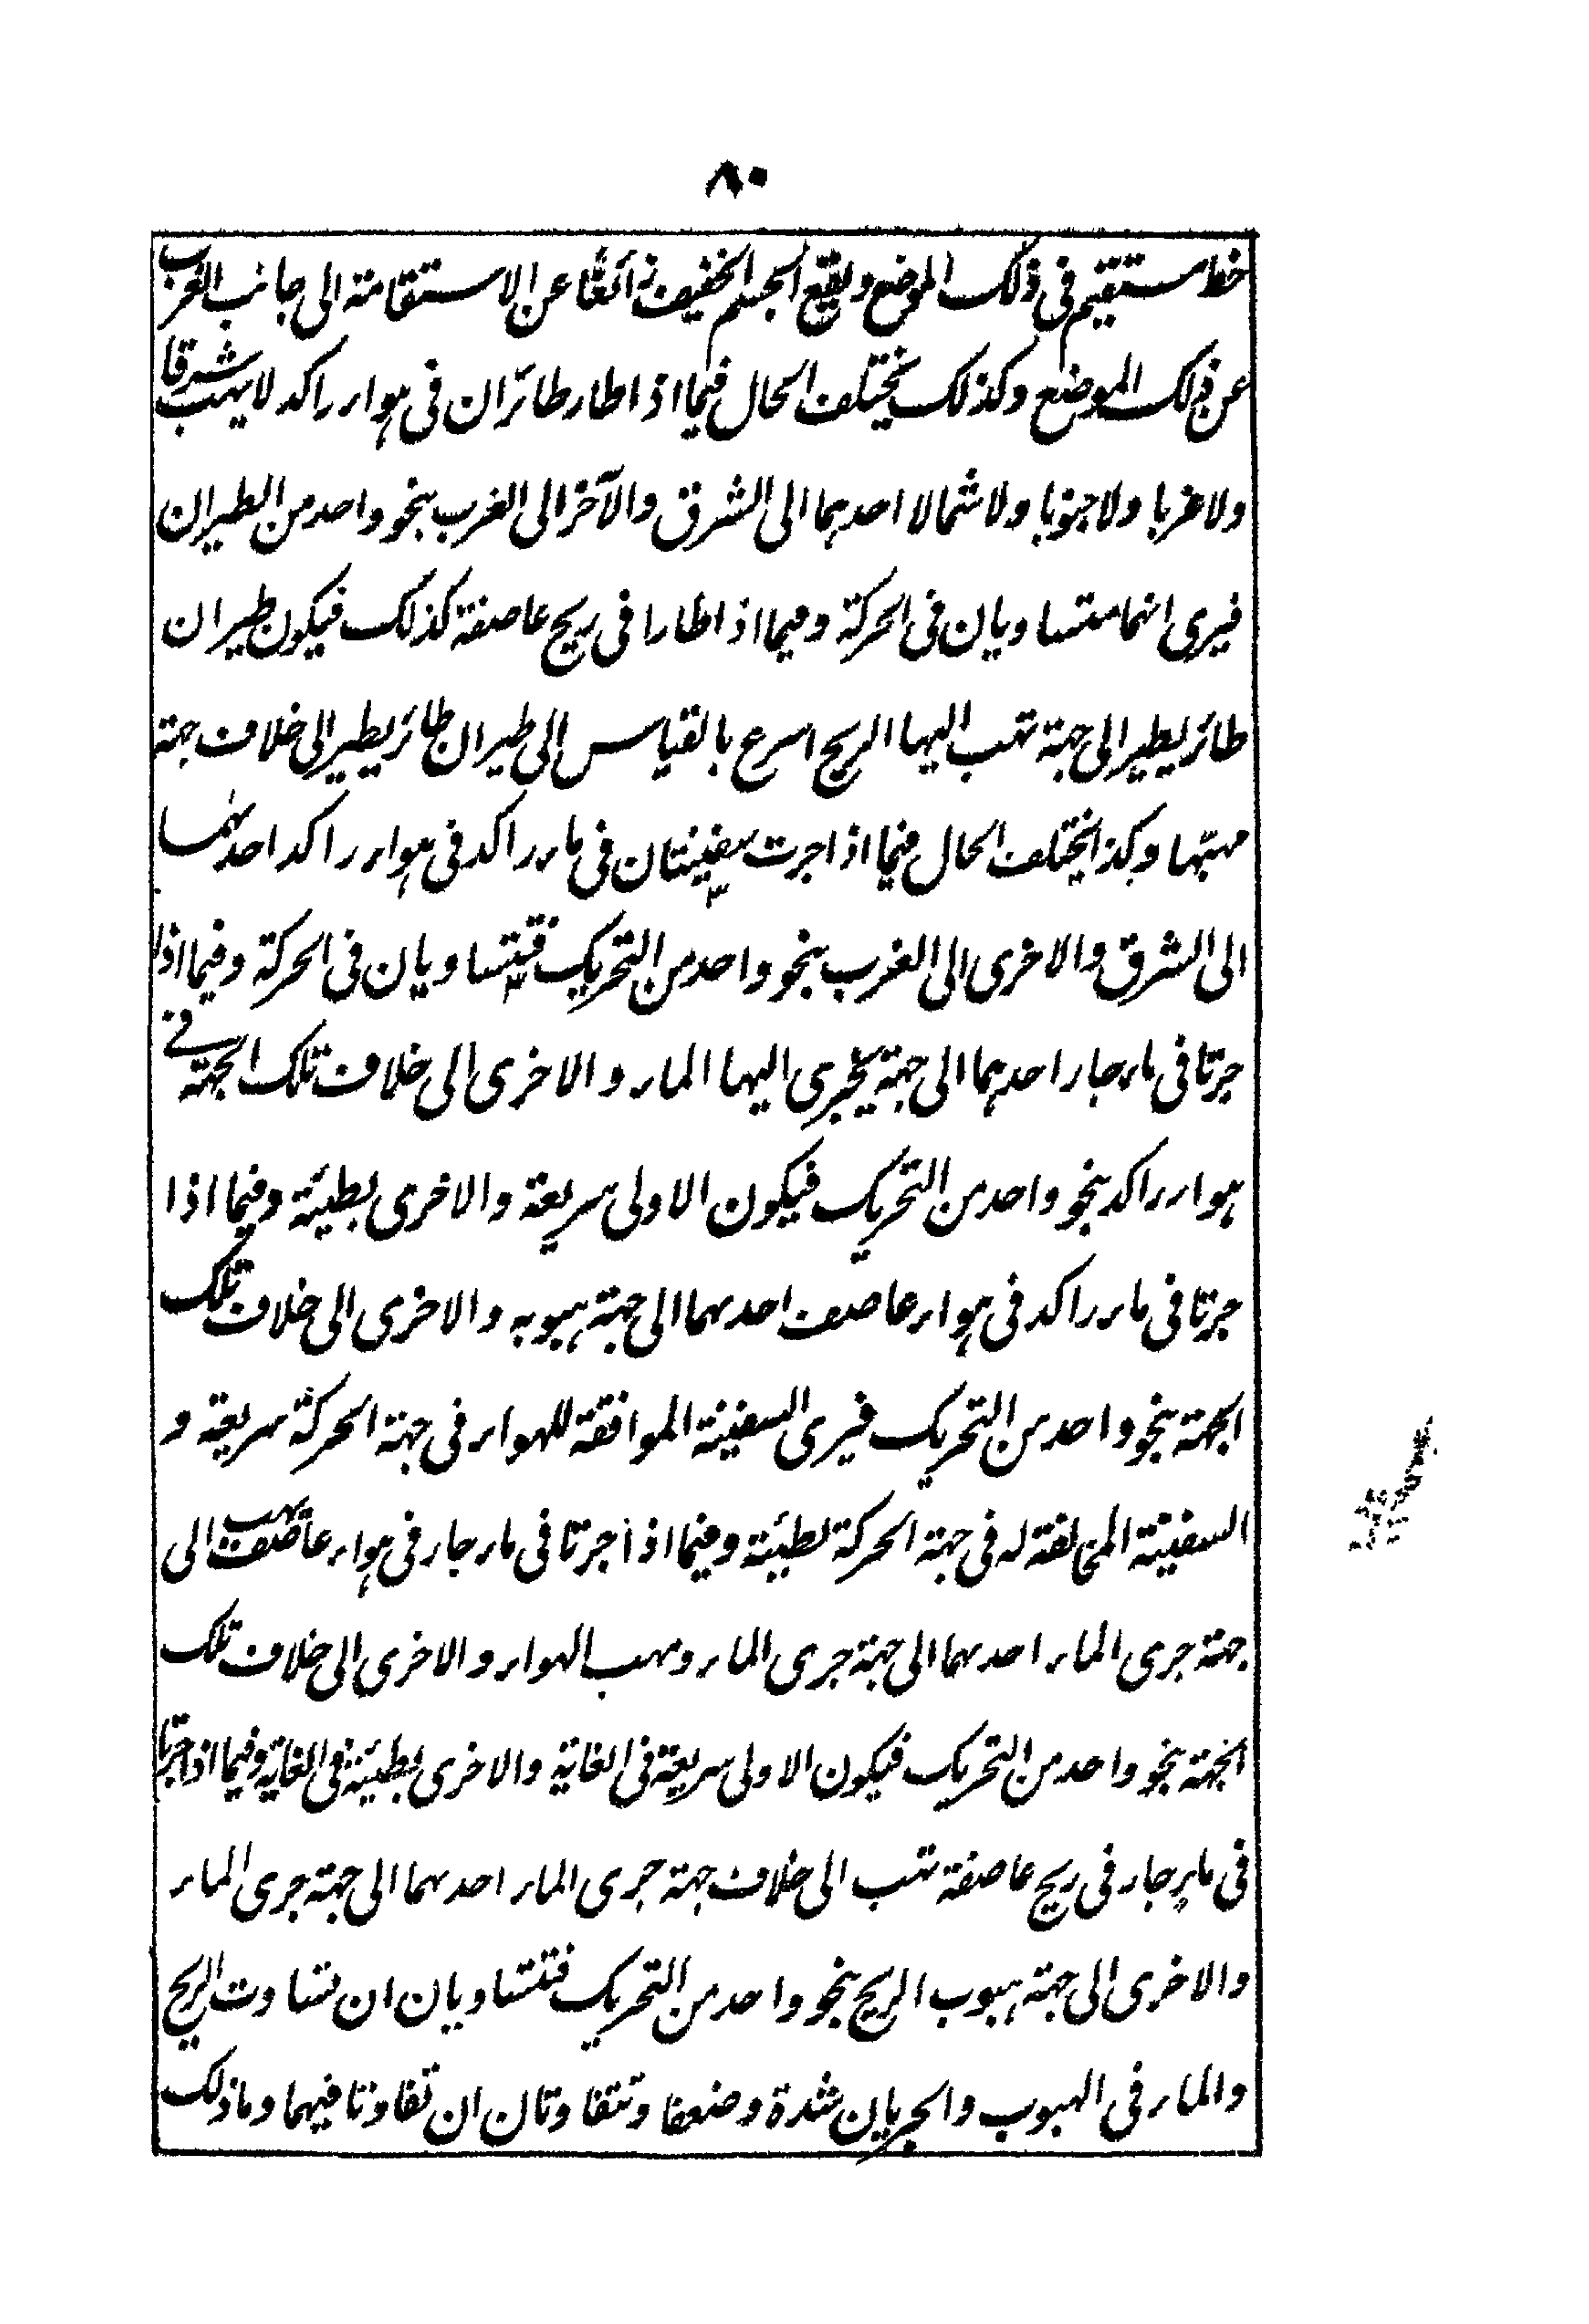 ٨٠
خط مستقيم فى ذلك الموضع ويقع الجسم الخفيف زائغا عن الاستقامة الى جانب الغرب
عن ذلك الموضع وكذلك يختلف الحال فيما اذا طار طائران فى هواء راكد لا يهب شرقا
ولا غربا ولا جنوبا ولا شمالا احدهما الى الشرق والآخر الى الغرب بنحو واحد من الطيران
فيرى انهما متساويان فى الحركة وفيما اذا طارا فى ريح عاصفة كذلك فيكون طيران
طائر يطير الى جهة تهب اليها الريح اسرع بالقياس الى طيران طائر يطير الى خلاف جهة
مهبها وكذا يختلف الحال فيما اذا جرت سفينتان فى ماء راكد فى هواء راكد احدىهما
الى الشرق والاخرى الى الغرب بنحو واحد من التحريك فتتساويان فى الحركة وفيما اذا
جرتا فى ماء جار احدىهما الى جهة يجرى اليها الماء والاخرى الى خلاف تلك الجهة فى
هواء راكد بنحو واحد من التحريك فيكون الاولى سريعة والاخرى بطيئة وفيما اذا
جرتا فى ماء راكد فى هواء عاصف احدىهما الى جهة هبوبه والاخرى الى خلاف تلك
الجهة بنحو واحد من التحريك فيرى السفينة الموافقة للهواء فى جهة الحركة سريعة و
السفينة المخالفة له فى جهة الحركة بطيئة وفيما اذا جرتا فى ماء جار فى هواء عاصف يهب الى
جهة جرى الماء احدىهما الى جهة جرى الماء ومهب الهواء والاخرى الى خلاف تلك
الجهة بنحو واحد من التحريك فيكون الاولى سريعة فى الغاية والاخرى بطيئة فى الغاية وفيما اذا جرتا
فى ماء جار فى ريح عاصفة تهب الى خلاف جهة جرى الماء احدىهما الى جهة جرى الماء
والاخرى الى جهة هبوب الريح بنحو واحد من التحريك فتتساويان ان تساوت الريح
والماء فى الهبوب والجريان شدة وضعفا وتتفاوتان ان تفاوتا فيهما وما ذلك